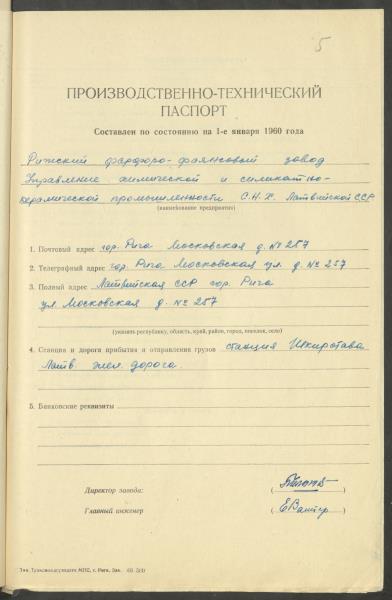 5
ПРОИЗВОДСТВЕННО-ТЕХНИЧЕСКИЙ
ПАСПОРТ
Составлен по состоянию на 1-е января 1960 года
Рижский фарфоро-фаянсовый завод
Управление химической и силикатно-
керамической промышленности С.Н.Х. Латвийской ССР
(наименование предприятия)
1. Почтовый адрес гор. Рига Московская д. № 257
2. Телеграфный адрес гор. Рига Московская ул. д. № 257
3. Полный адрес Латвийская ССР гор. Рига
ул. Московская д. № 257
(указать республику, область, край, район, город, поселок, село)
4. Станция и дорога прибытия и отправления грузов станция Шкиротава
Латв. жел. дорога.
5. Банковские реквизиты
Директор завода: ( )
Главный инженер ( )